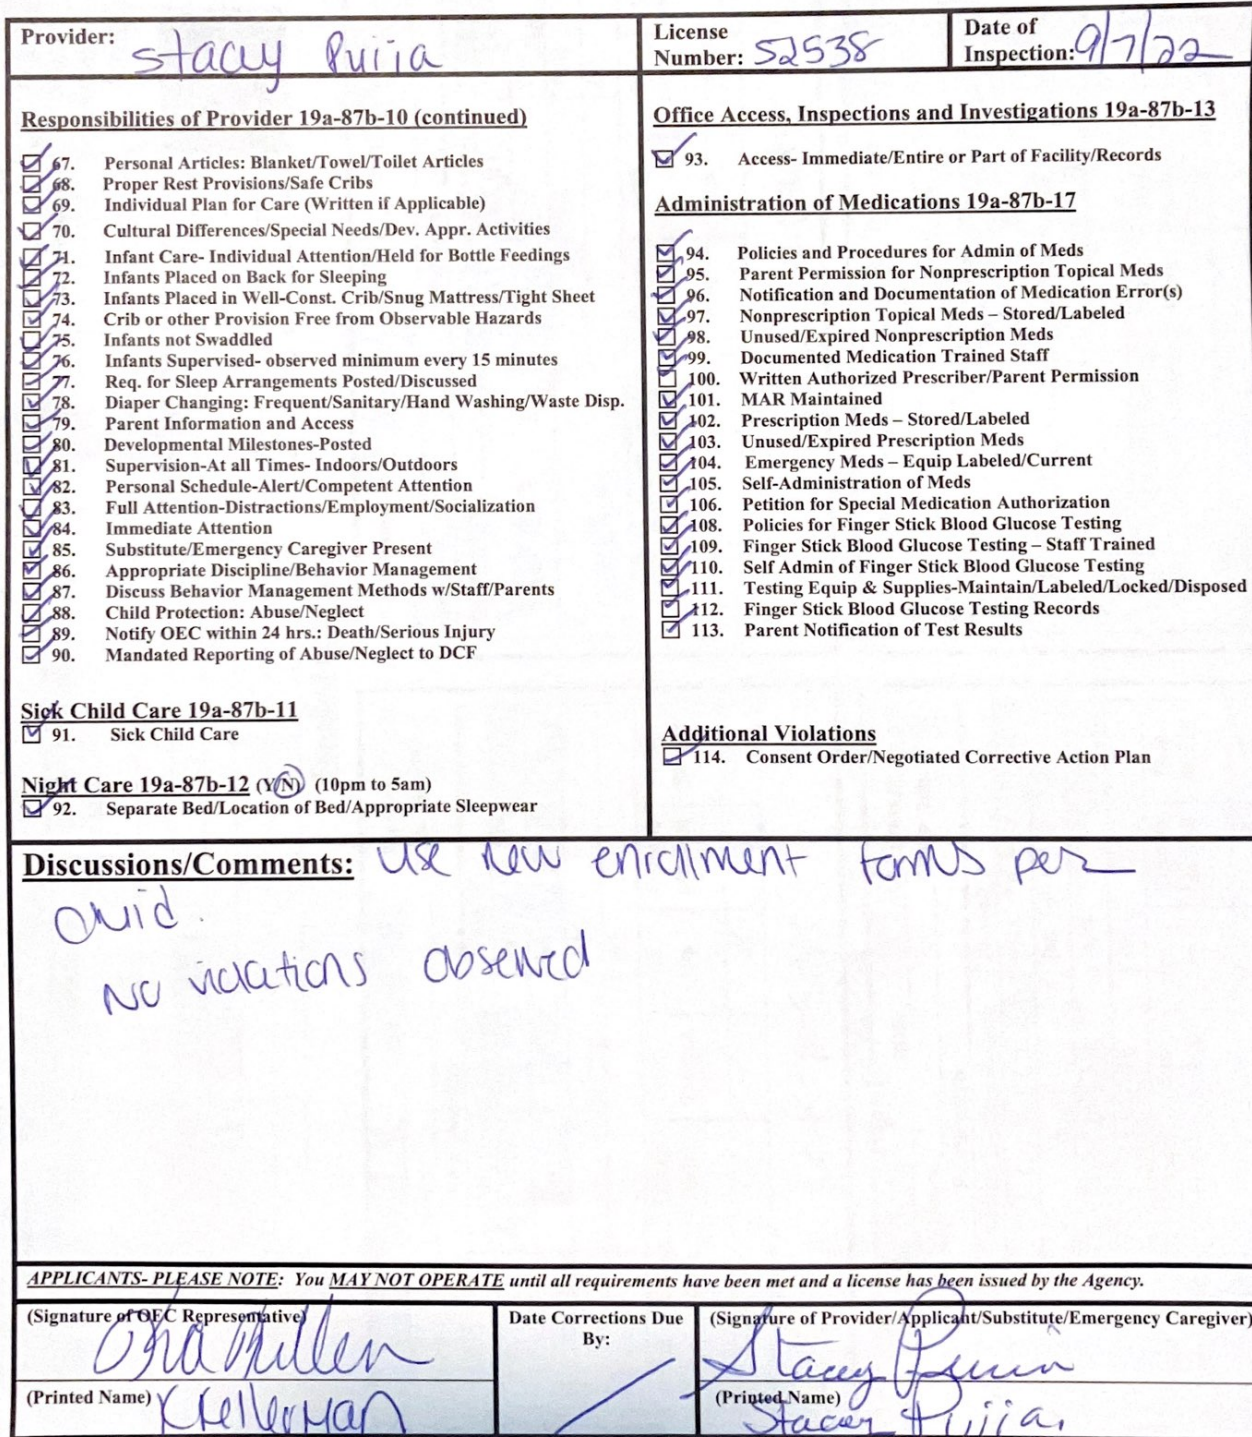 Provider: Stacy Puiia
License Number: 52538
Date of Inspection: 9/7/22
Responsibilities of Provider 19a-87b-10 (continued)
67. Personal Articles: Blanket/Towel/Toilet Articles
68. Proper Rest Provisions/Safe Cribs
69. Individual Plan for Care (Written if Applicable)
70. Cultural Differences/Special Needs/Dev. Appr. Activities
71. Infant Care- Individual Attention/Held for Bottle Feedings
72. Infants Placed on Back for Sleeping
73. Infants Placed in Well-Const. Crib/Snug Mattress/Tight Sheet
74. Crib or other Provision Free from Observable Hazards
75. Infants not Swaddled
76. Infants Supervised- observed minimum every 15 minutes
77. Req. for Sleep Arrangements Posted/Discussed
78. Diaper Changing: Frequent/Sanitary/Hand Washing/Waste Disp.
79. Parent Information and Access
80. Developmental Milestones-Posted
81. Supervision-At all Times- Indoors/Outdoors
82. Personal Schedule-Alert/Competent Attention
83. Full Attention-Distractions/Employment/Socialization
84. Immediate Attention
85. Substitute/Emergency Caregiver Present
86. Appropriate Discipline/Behavior Management
87. Discuss Behavior Management Methods w/Staff/Parents
88. Child Protection: Abuse/Neglect
89. Notify OEC within 24 hrs.: Death/Serious Injury
90. Mandated Reporting of Abuse/Neglect to DCF
Sick Child Care 19a-87b-11
91. Sick Child Care
Night Care 19a-87b-12 (Y/N) (10pm to 5am)
92. Separate Bed/Location of Bed/Appropriate Sleepwear
Office Access, Inspections and Investigations 19a-87b-13
93. Access- Immediate/Entire or Part of Facility/Records
Administration of Medications 19a-87b-17
94. Policies and Procedures for Admin of Meds
95. Parent Permission for Nonprescription Topical Meds
96. Notification and Documentation of Medication Error(s)
97. Nonprescription Topical Meds – Stored/Labeled
98. Unused/Expired Nonprescription Meds
99. Documented Medication Trained Staff
100. Written Authorized Prescriber/Parent Permission
101. MAR Maintained
102. Prescription Meds – Stored/Labeled
103. Unused/Expired Prescription Meds
104. Emergency Meds – Equip Labeled/Current
105. Self-Administration of Meds
106. Petition for Special Medication Authorization
108. Policies for Finger Stick Blood Glucose Testing
109. Finger Stick Blood Glucose Testing – Staff Trained
110. Self Admin of Finger Stick Blood Glucose Testing
111. Testing Equip & Supplies-Maintain/Labeled/Locked/Disposed
112. Finger Stick Blood Glucose Testing Records
113. Parent Notification of Test Results
Additional Violations
114. Consent Order/Negotiated Corrective Action Plan
Discussions/Comments: Use new enrollment forms per
No violations observed
APPLICANTS- PLEASE NOTE: You MAY NOT OPERATE until all requirements have been met and a license has been issued by the Agency.
(Signature of OEC Representative)
(Printed Name) K Kellerman
Date Corrections Due By:
(Signature of Provider/Applicant/Substitute/Emergency Caregiver)
Stacey
(Printed Name)
Stacey Puiia